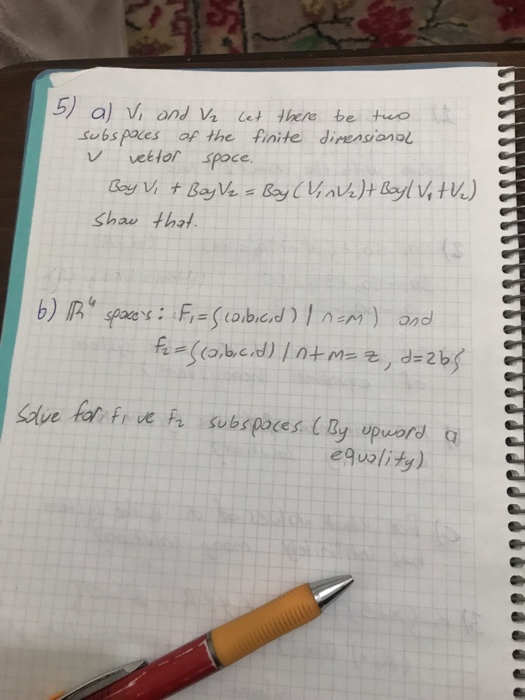 5) a) V₁ and V₂ Let there be two
subspaces of the finite dimensional
V vektor space.
Boy V₁ + Boy V₂ = Boy (V₁∩V₂) + Boy (V₁+V₂)
Show that.
b) ℝ⁴ space's : F₁ = {(a,b,c,d) | n=m) and
F₂ = {(a,b,c,d) | n+m= z, d=2b}
Solve for F₁ ve F₂ subspaces. (By upword a
equality)